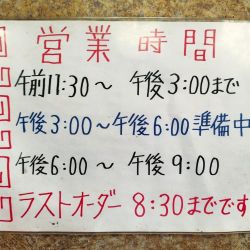 営業時間
午前11:30～午後3:00まで
午後3:00～午後6:00準備中
午後6:00～午後9:00
ラストオーダー8:30までです